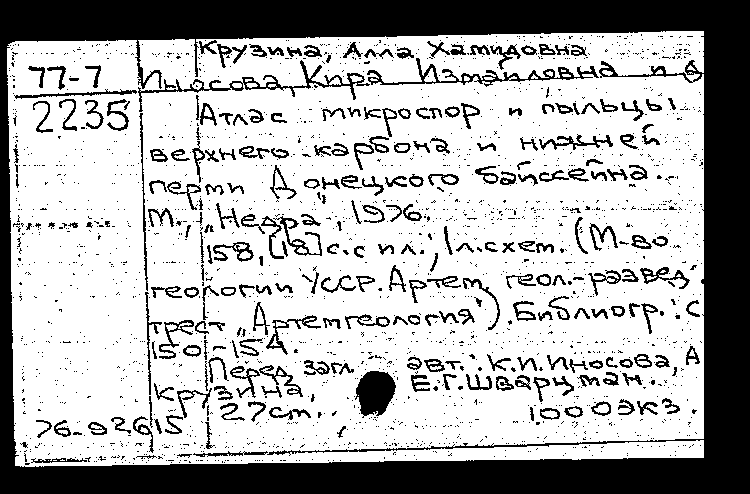 Крузина, Алла Хамидовна
77-7 Иносова, Кира Измайловна и д
2235 Атлас микроспор и пыльцы
верхнего карбона и нижней
перми Донецкого байссейна.
М., "Недра", 1976.
158, [18] с. с ил.; 1 л. схем. (М-во
геологии УССР. Артем. геол.-развед.
трест "Артемгеология"). Библиогр.: с
150-154.
Перед загл. авт.: К.И. Иносова, А
Крузина, Е.Г. Шварцман.
27 см. 1.000 экз.
76-92615